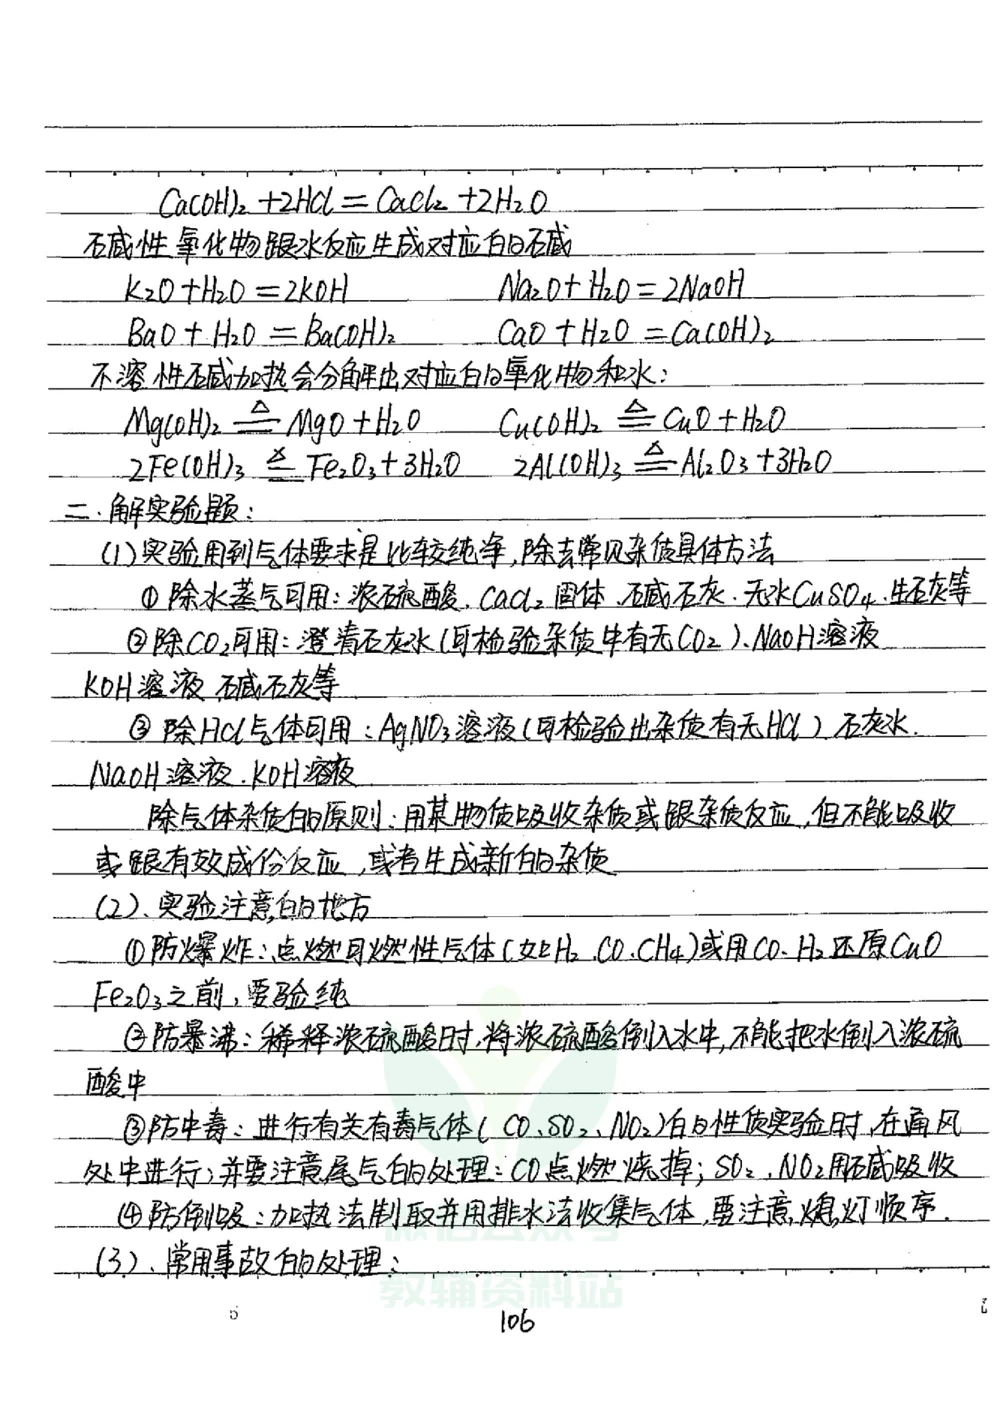 Ca(OH)₂+2HCl=CaCl₂+2H₂O
碱性氧化物跟水反应生成对应的碱
K₂O+H₂O=2KOH Na₂O+H₂O=2NaOH
BaO+H₂O=Ba(OH)₂ CaO+H₂O=Ca(OH)₂
不溶性碱加热会分解出对应的氧化物和水:
Mg(OH)₂ ≜ MgO+H₂O Cu(OH)₂ ≜ CuO+H₂O
2Fe(OH)₃ ≜ Fe₂O₃+3H₂O 2Al(OH)₃ ≜ Al₂O₃+3H₂O
二.解实验题:
(1)实验用到气体要求是比较纯净,除去常见杂质具体方法
①除水蒸气可用:浓硫酸.CaCl₂固体.碱石灰.无水CuSO₄.生石灰等
②除CO₂可用:澄清石灰水(可检验杂质中有无CO₂).NaOH溶液
KOH溶液.碱石灰等
③除HCl气体可用:AgNO₃溶液(可检验出杂质有无HCl)石灰水.
NaOH溶液.KOH溶液
除气体杂质的原则:用某物质吸收杂质或跟杂质反应,但不能吸收
或跟有效成份反应,或者生成新的杂质
(2).实验注意的地方
①防爆炸:点燃可燃性气体(如H₂.CO.CH₄)或用CO.H₂还原CuO
Fe₂O₃之前,要验纯
②防暴沸:稀释浓硫酸时,将浓硫酸倒入水中,不能把水倒入浓硫
酸中
③防中毒:进行有关有毒气体(CO、SO₂、NO₂)的性质实验时,在通风
处中进行;并要注意尾气的处理:CO点燃烧掉;SO₂.NO₂用碱吸收
④防倒吸:加热法制取并用排水法收集气体,要注意熄灯顺序.
(3).常用事故的处理:
教辅资料站
5
106